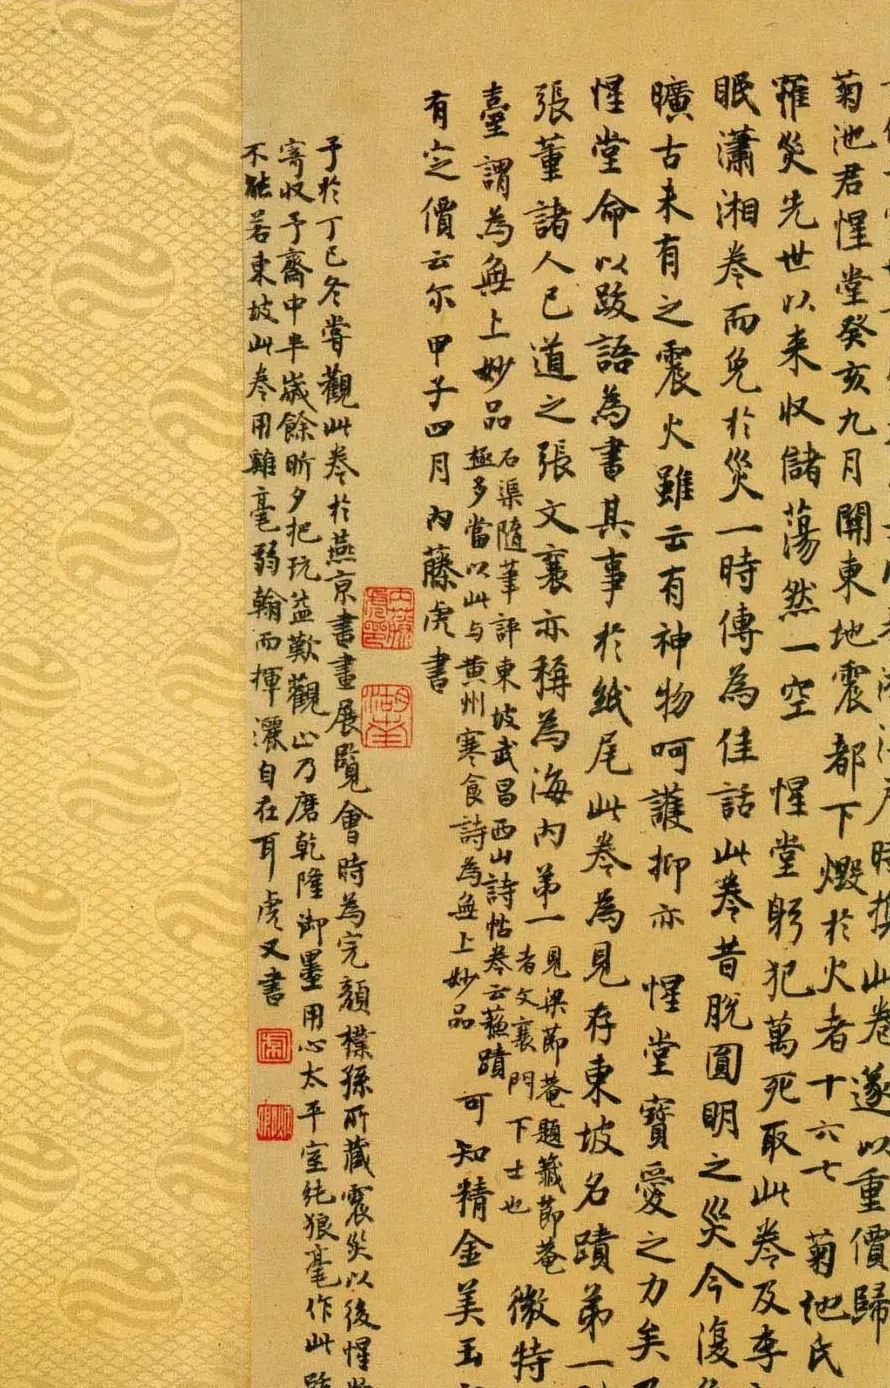 時攜此卷遂以重價歸
菊池君惺堂癸亥九月關東地震都下燬於火者十六七 菊池氏
罹災先世以来収儲蕩然一空 惺堂躬犯萬死取此卷及李
眠瀟湘卷而免於災一時傳為佳話此卷昔脫圓明之災今復
曠古未有之震火雖云有神物呵護抑亦 惺堂寶愛之力矣
惺堂命以跋語為書其事於紙尾此卷為見存東坡名蹟第一
張董諸人已道之張文襄亦稱為海内第一
見梁節菴題籤節菴
者文襄門下士也
徵特
臺謂為無上妙品
石渠隨筆評東坡武昌西山詩帖卷云蘇蹟
極多當以此与黄州寒食詩為無上妙品
可知精金美玉
有定價云尔甲子四月内藤虎書
内藤虎印
湖南
予於丁巳冬嘗觀此卷於燕京書畫展覽會時為完顏樸孫所藏震災以後惺
寄収予齋中半歲餘昕夕把玩益歎觀止乃磨乾隆御墨用心太平室純狼毫作此跋
不能若東坡此卷用雞毫弱翰而揮灑自在耳虎又書